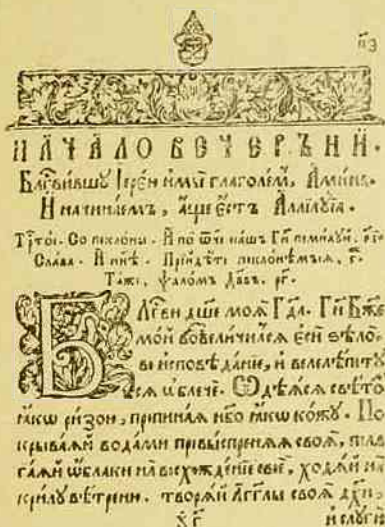 п҃з
НАЧАЛО ВЕЧЕРЪНИ.
Бл҃гви́вшу Іере́и и҆ мы̀ глаго́лем, А҆ми́нь.
И҆ начина́емъ, а҆́ще є҆́стъ А҆ллилꙋ́їа.
Трⷭ҇то́е. Со покло́ны. И҆ по ѿ́ч҃и на́шъ Гдⷭ҇и поми́лꙋй, в҃і.
Сла́ва. И҆ нн҃ѣ. Прїйдѣ́те поклони́мъся, г҃.
Та́же, ѱало́мъ Дв҃дъ. рг҃.
БЛГ҃ви дш҃е моѧ̀ Гдⷭ҇а. Гдⷭ҇и Бж҃е
мо́й возвели́чилсѧ є҆сѝ ѕѣлѡ̀.
во и҆сповѣ́данїе, и҆ велелѣ́питꙋ
сѧ ѡ҆блечѐ. Ѻ҆дѣ́ѧсѧ свѣ́тѡ
ꙗ҆́кѡ ри́зою, пропина́ѧ нб҃о ꙗ҆́кѡ ко́жꙋ. По
крыва́ѧй вода́ми превы́спренѧѧ своѧ̀, пола
га́ѧй ѡ҆́блаки на восхожде́нїе своѐ, ходѧ́й на
крилꙋ̀ вѣ́треню. творѧ́й а҆́гг҃лы своѧ̀ дх҃и,
и҆ слꙋги́